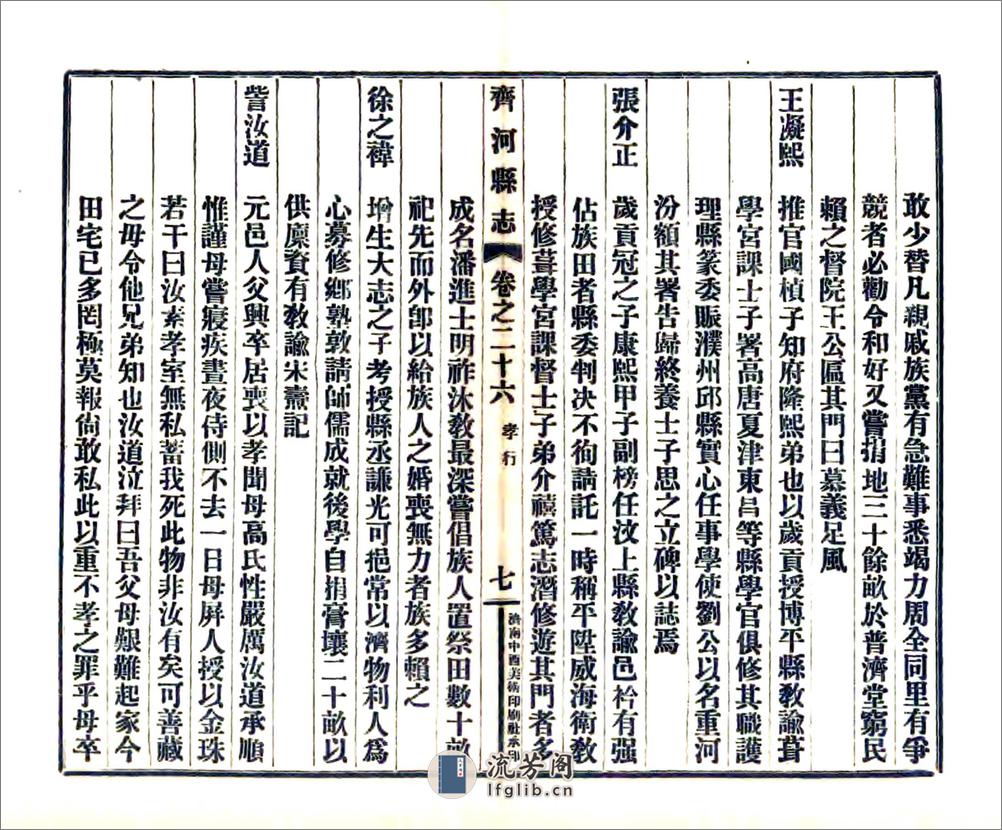 敢少替凡親戚族黨有急難事悉竭力周全同里有爭
競者必勸令和好又嘗捐地三十餘畝於普濟堂窮民
賴之督院王公匾其門曰慕義足風
王凝熙　推官國楨子知府隆熙弟也以歲貢授博平縣教諭葺
學宮課士子署高唐夏津東昌等縣學官俱修其職護
理縣篆委賑濮州邱縣實心任事學使劉公以名重河
汾額其署告歸終養士子思之立碑以誌焉
張介正　歲貢冠之子康熙甲子副榜任汶上縣教諭邑衿有强
佔族田者縣委判決不徇請託一時稱平陞威海衛教
授修葺學宮課督士子弟介禧篤志潛修遊其門者多
齊河縣志　卷之二十六　孝行　七　濟南中西美術印刷社承印
成名潘進士明祚沐教最深嘗倡族人置祭田數十畝
祀先而外卽以給族人之婚喪無力者族多賴之
徐之褘　增生大志之子考授縣丞謙光可挹常以濟物利人爲
心募修鄉塾敦請師儒成就後學自捐膏壤二十畝以
供廩資有教諭宋燾記
訾汝道　元邑人父興卒居喪以孝聞母高氏性嚴厲汝道承順
惟謹母嘗寢疾晝夜侍側不去一日母屏人授以金珠
若干曰汝素孝室無私蓄我死此物非汝有矣可善藏
之毋令他兄弟知也汝道泣拜曰吾父母艱難起家今
田宅已多罔極莫報尙敢私此以重不孝之罪乎母卒
流芳阁
lfglib.cn